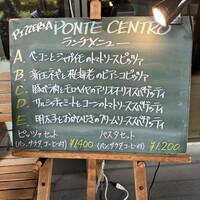 PIZZERIA PONTE CENTRO
ランチメニュー
A. ベーコンとジャガイモのトマトソースピッツァ
B. 新玉ネギと桜海老のビアンコピッツァ
C. 豚バラ肉と のトマトソーススパゲッティ
D. サルシッチャとコーンのトマトソーススパゲッティ
E. 明太子と のクリームソーススパゲッティ
ピッツァセット パスタセット
(パン,サラダ,コーヒー付) ¥1400 (パン,サラダ,コーヒー付) ¥1,200